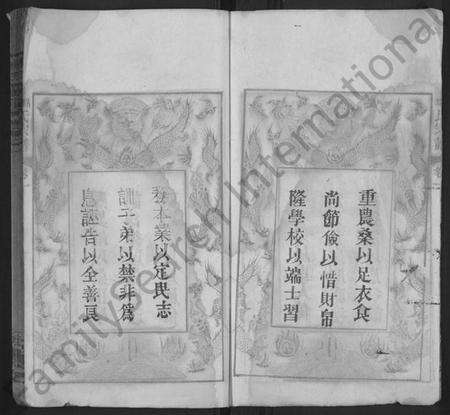 重農桑以足衣食
尚節儉以惜財帛
隆學校以端士習
務本業以定民志
訓子弟以禁非為
息誣告以全善良
amilySearch International